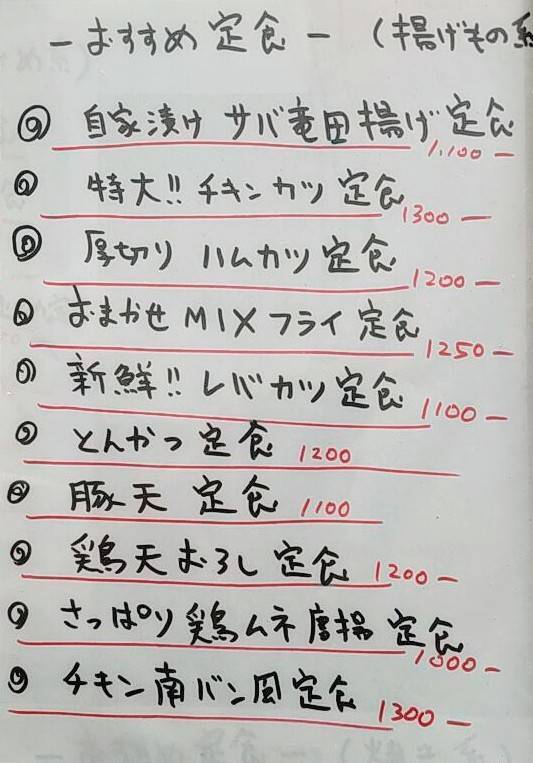 －おすすめ定食－（揚げもの系
◎ 自家漬け サバ竜田揚げ定食
1,100－
◎ 特大!! チキンカツ定食
1300－
◎ 厚切り ハムカツ定食
1200－
◎ おまかせ MIXフライ定食
1250－
◎ 新鮮!! レバカツ定食
1100－
◎ とんかつ定食 1200
◎ 豚天定食 1100
◎ 鶏天おろし定食 1200－
◎ さっぱり鶏ムネ唐揚定食
1000－
◎ チキン南バン風定食
1300－